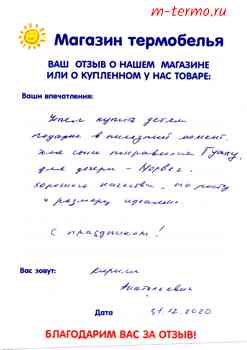 m-termo.ru
Магазин термобелья
ВАШ ОТЗЫВ О НАШЕМ МАГАЗИНЕ
ИЛИ О КУПЛЕННОМ У НАС ТОВАРЕ:
Ваши впечатления:
Успел купить детям
подарки в последний момент.
Для сына понравился Гуаху,
для дочери - Норвег.
хорошего качества, по росту
и размеру идеально.
С праздником!
Вас зовут: Кирилл
Анатольевич
Дата 31.12.2020
БЛАГОДАРИМ ВАС ЗА ОТЗЫВ!